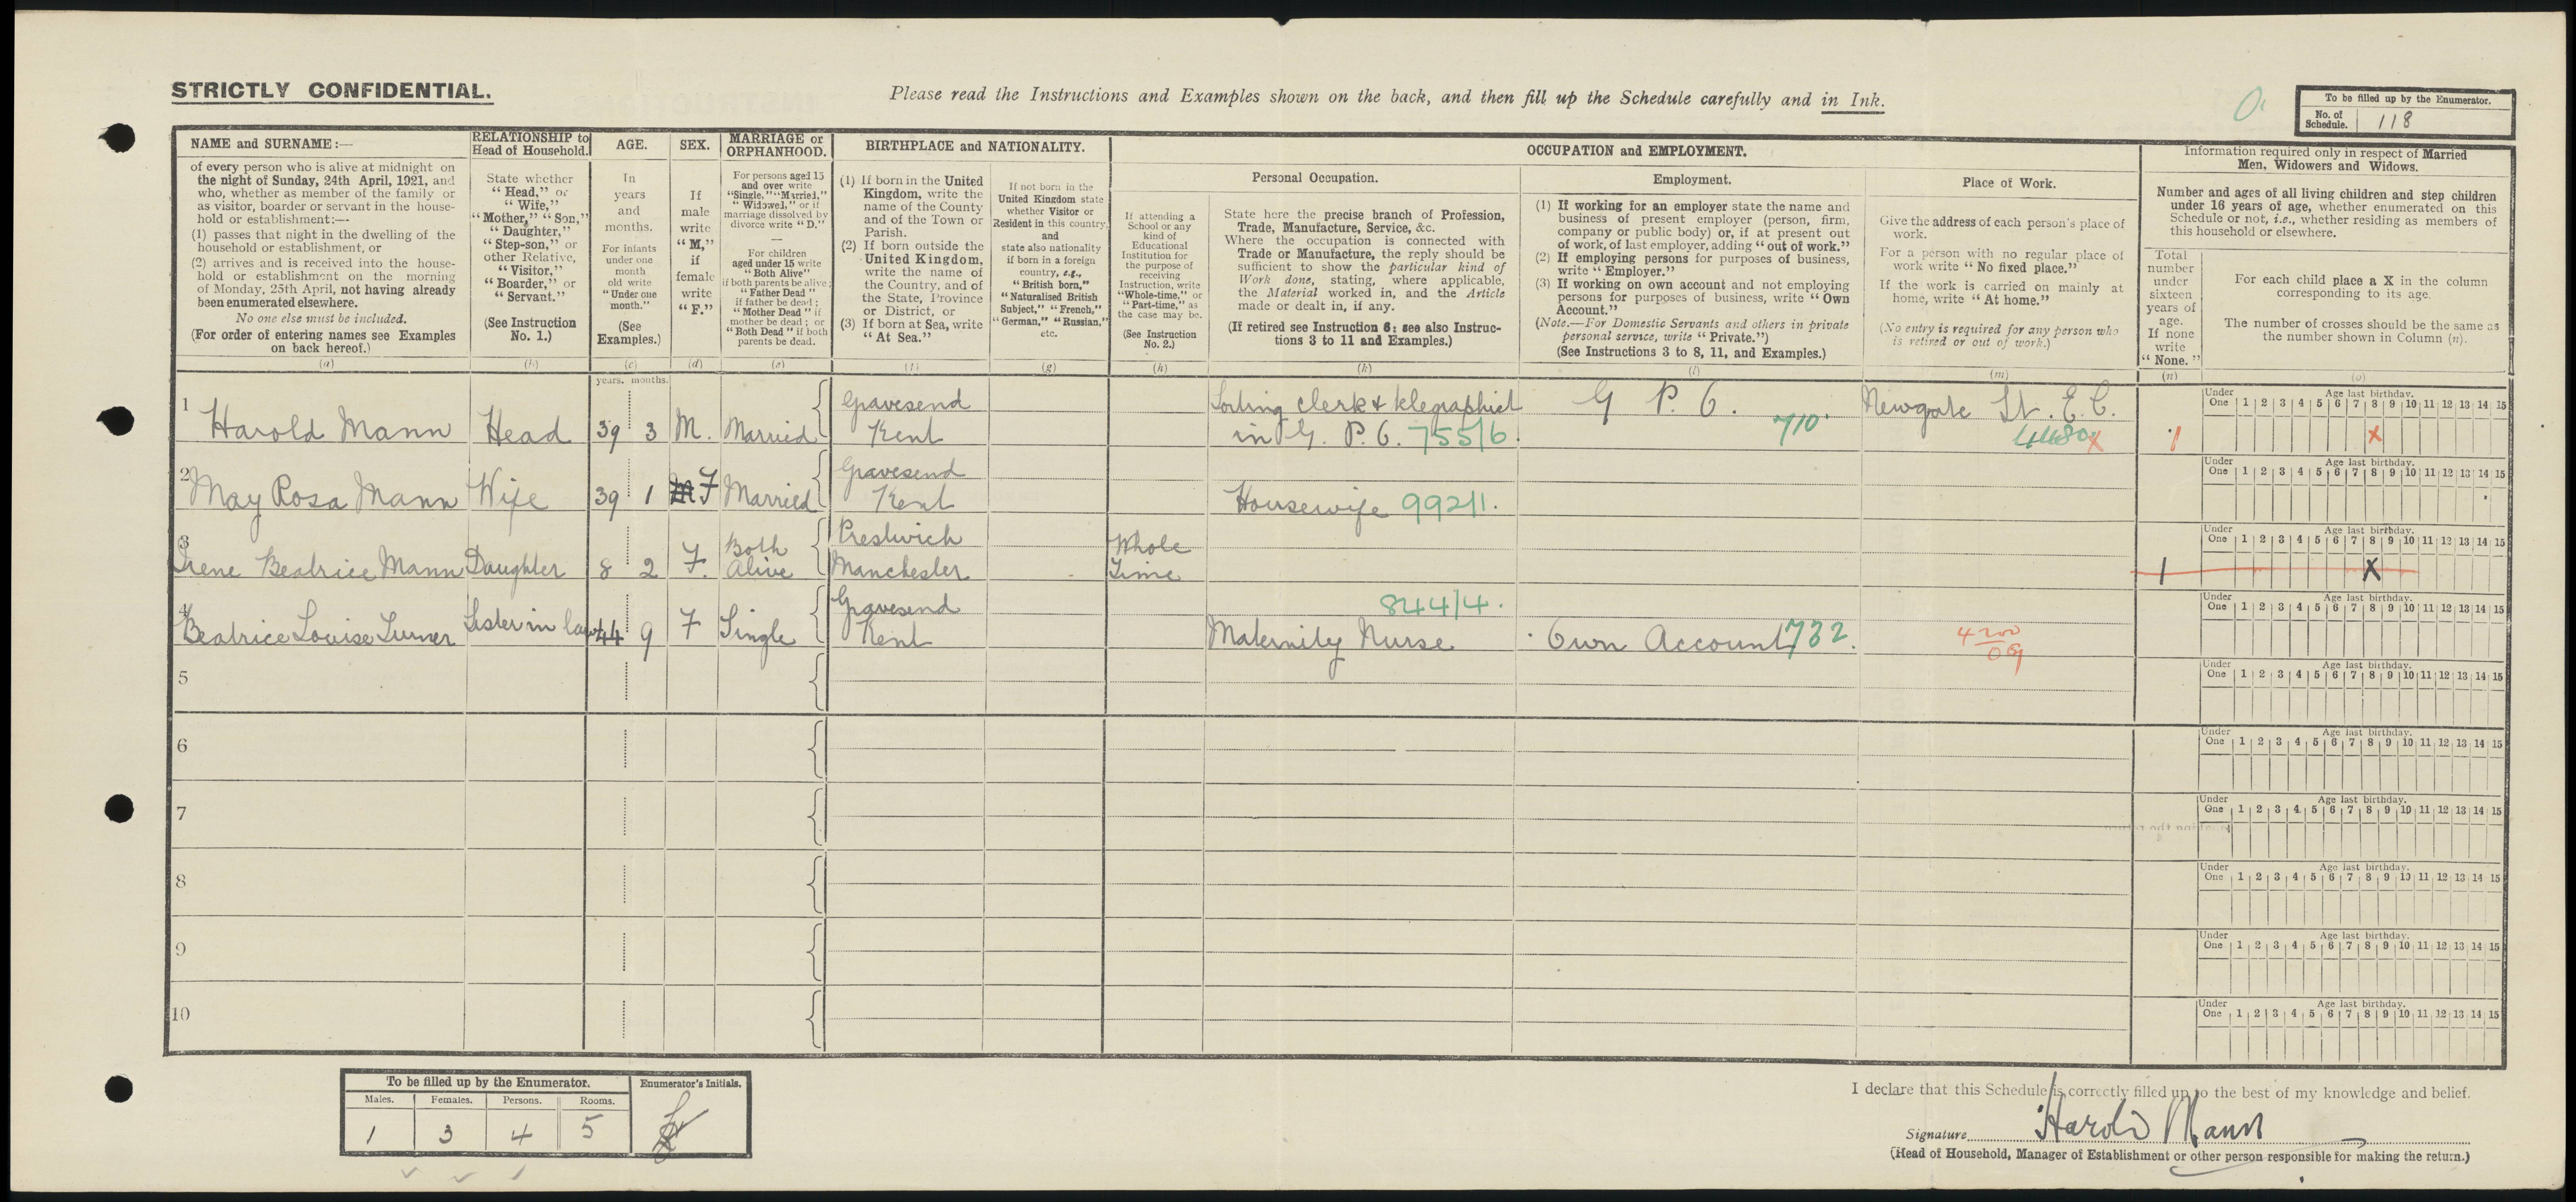 STRICTLY CONFIDENTIAL.
Please read the Instructions and Examples shown on the back, and then fill up the Schedule carefully and in Ink.
To be filled up by the Enumerator.
No. of Schedule. 118
NAME and SURNAME:—
of every person who is alive at midnight on
the night of Sunday, 24th April, 1921, and
who, whether as member of the family or
as visitor, boarder or servant in the house-
hold or establishment:—
(1) passes that night in the dwelling of the
household or establishment, or
(2) arrives and is received into the house-
hold or establishment on the morning
of Monday, 25th April, not having already
been enumerated elsewhere.
No one else must be included.
(For order of entering names see Examples
on back hereof.)
(a)
RELATIONSHIP to
Head of Household.
State whether
"Head," or
"Wife,"
"Mother," "Son,"
"Daughter,"
"Step-son," or
other Relative,
"Visitor,"
"Boarder," or
"Servant."
(See Instruction
No. 1.)
(b)
AGE.
In
years
and
months.
For infants
under one
month
old write
"Under one
month."
(See
Examples.)
(c)
SEX.
If
male
write
"M,"
if
female
write
"F."
(d)
MARRIAGE or
ORPHANHOOD.
For persons aged 15
and over write
"Single," "Married,"
"Widowed," or if
marriage dissolved by
divorce write "D."
—
For children
aged under 15 write
"Both Alive"
if both parents be alive;
"Father Dead"
if father be dead;
"Mother Dead" if
mother be dead; or
"Both Dead" if both
parents be dead.
(e)
BIRTHPLACE and NATIONALITY.
(1) If born in the United
Kingdom, write the
name of the County
and of the Town or
Parish.
(2) If born outside the
United Kingdom,
write the name of
the Country, and of
the State, Province
or District, or
(3) If born at Sea, write
"At Sea."
(f)
If not born in the
United Kingdom state
whether Visitor or
Resident in this country,
and
state also nationality
if born in a foreign
country, e.g.,
"British born,"
"Naturalised British
Subject," "French,"
"German," "Russian,"
etc.
(g)
OCCUPATION and EMPLOYMENT.
If attending a
School or any
kind of
Educational
Institution for
the purpose of
receiving
Instruction, write
"Whole-time," or
"Part-time," as
the case may be.
(See Instruction
No. 2.)
(h)
Personal Occupation.
State here the precise branch of Profession,
Trade, Manufacture, Service, &c.
Where the occupation is connected with
Trade or Manufacture, the reply should be
sufficient to show the particular kind of
Work done, stating, where applicable,
the Material worked in, and the Article
made or dealt in, if any.
(If retired see Instruction 6: see also Instruc-
tions 3 to 11 and Examples.)
(k)
Employment.
(1) If working for an employer state the name and
business of present employer (person, firm,
company or public body) or, if at present out
of work, of last employer, adding "out of work."
(2) If employing persons for purposes of business,
write "Employer."
(3) If working on own account and not employing
persons for purposes of business, write "Own
Account."
(Note.—For Domestic Servants and others in private
personal service, write "Private.")
(See Instructions 3 to 8, 11, and Examples.)
(l)
Place of Work.
Give the address of each person's place of
work.
For a person with no regular place of
work write "No fixed place."
If the work is carried on mainly at
home, write "At home."
(No entry is required for any person who
is retired or out of work.)
(m)
Information required only in respect of Married
Men, Widowers and Widows.
Number and ages of all living children and step children
under 16 years of age, whether enumerated on this
Schedule or not, i.e., whether residing as members of
this household or elsewhere.
Total
number
under
sixteen
years of
age.
If none
write
"None."
(n)
For each child place a X in the column
corresponding to its age.
The number of crosses should be the same as
the number shown in Column (n).
(o)
years. months.
Under One Age last birthday. 1 2 3 4 5 6 7 8 9 10 11 12 13 14 15
1 Harold Mann Head 39 3 M. Married Gravesend Kent Sorting clerk & telegraphist in G. P. O. 755/6. G P. O. 710. Newgate St. E.C. 1 X
Under One Age last birthday. 1 2 3 4 5 6 7 8 9 10 11 12 13 14 15
2 May Rosa Mann Wife 39 1 M F Married Gravesend Kent Housewife 992/1.
Under One Age last birthday. 1 2 3 4 5 6 7 8 9 10 11 12 13 14 15
3 Irene Beatrice Mann Daughter 8 2 F. Both Alive Prestwich Manchester Whole Time 1 X
Under One Age last birthday. 1 2 3 4 5 6 7 8 9 10 11 12 13 14 15
4 Beatrice Louise Turner Sister in law 44 9 F Single Gravesend Kent 844/4. Maternity Nurse Own Account 732.
Under One Age last birthday. 1 2 3 4 5 6 7 8 9 10 11 12 13 14 15
5
Under One Age last birthday. 1 2 3 4 5 6 7 8 9 10 11 12 13 14 15
6
Under One Age last birthday. 1 2 3 4 5 6 7 8 9 10 11 12 13 14 15
7
Under One Age last birthday. 1 2 3 4 5 6 7 8 9 10 11 12 13 14 15
8
Under One Age last birthday. 1 2 3 4 5 6 7 8 9 10 11 12 13 14 15
9
Under One Age last birthday. 1 2 3 4 5 6 7 8 9 10 11 12 13 14 15
10
Under One Age last birthday. 1 2 3 4 5 6 7 8 9 10 11 12 13 14 15
To be filled up by the Enumerator. Enumerator's Initials.
Males. Females. Persons. Rooms.
1 3 4 5
I declare that this Schedule is correctly filled up to the best of my knowledge and belief.
Signature Harold Mann
(Head of Household, Manager of Establishment or other person responsible for making the return.)